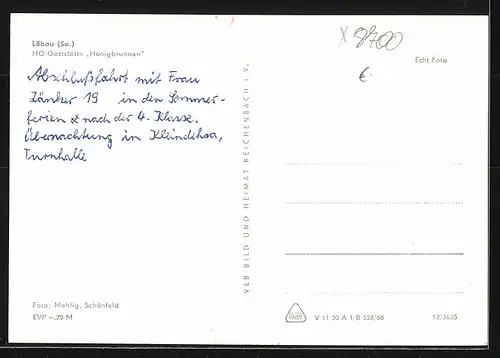 Löbau (Sa.)
HO-Gaststätte „Honigbrunnen"
Abschlußfahrt mit Frau
Zänker 19 in den Sommer-
ferien & nach der 4. Klasse.
Übernachtung in Kleindehsa,
Turnhalle
Foto: Mehlig, Schönfeld
EVP -.20 M
VEB BILD UND HEIMAT REICHENBACH i. V.
X 8700
€.
Echt Foto
V 11 50 A 1/B 528/68 12/3635